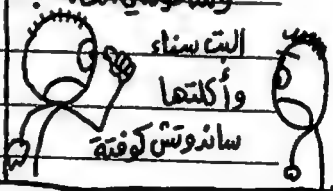 البت سناء
وأكلتها
ساندوتش كوفتة